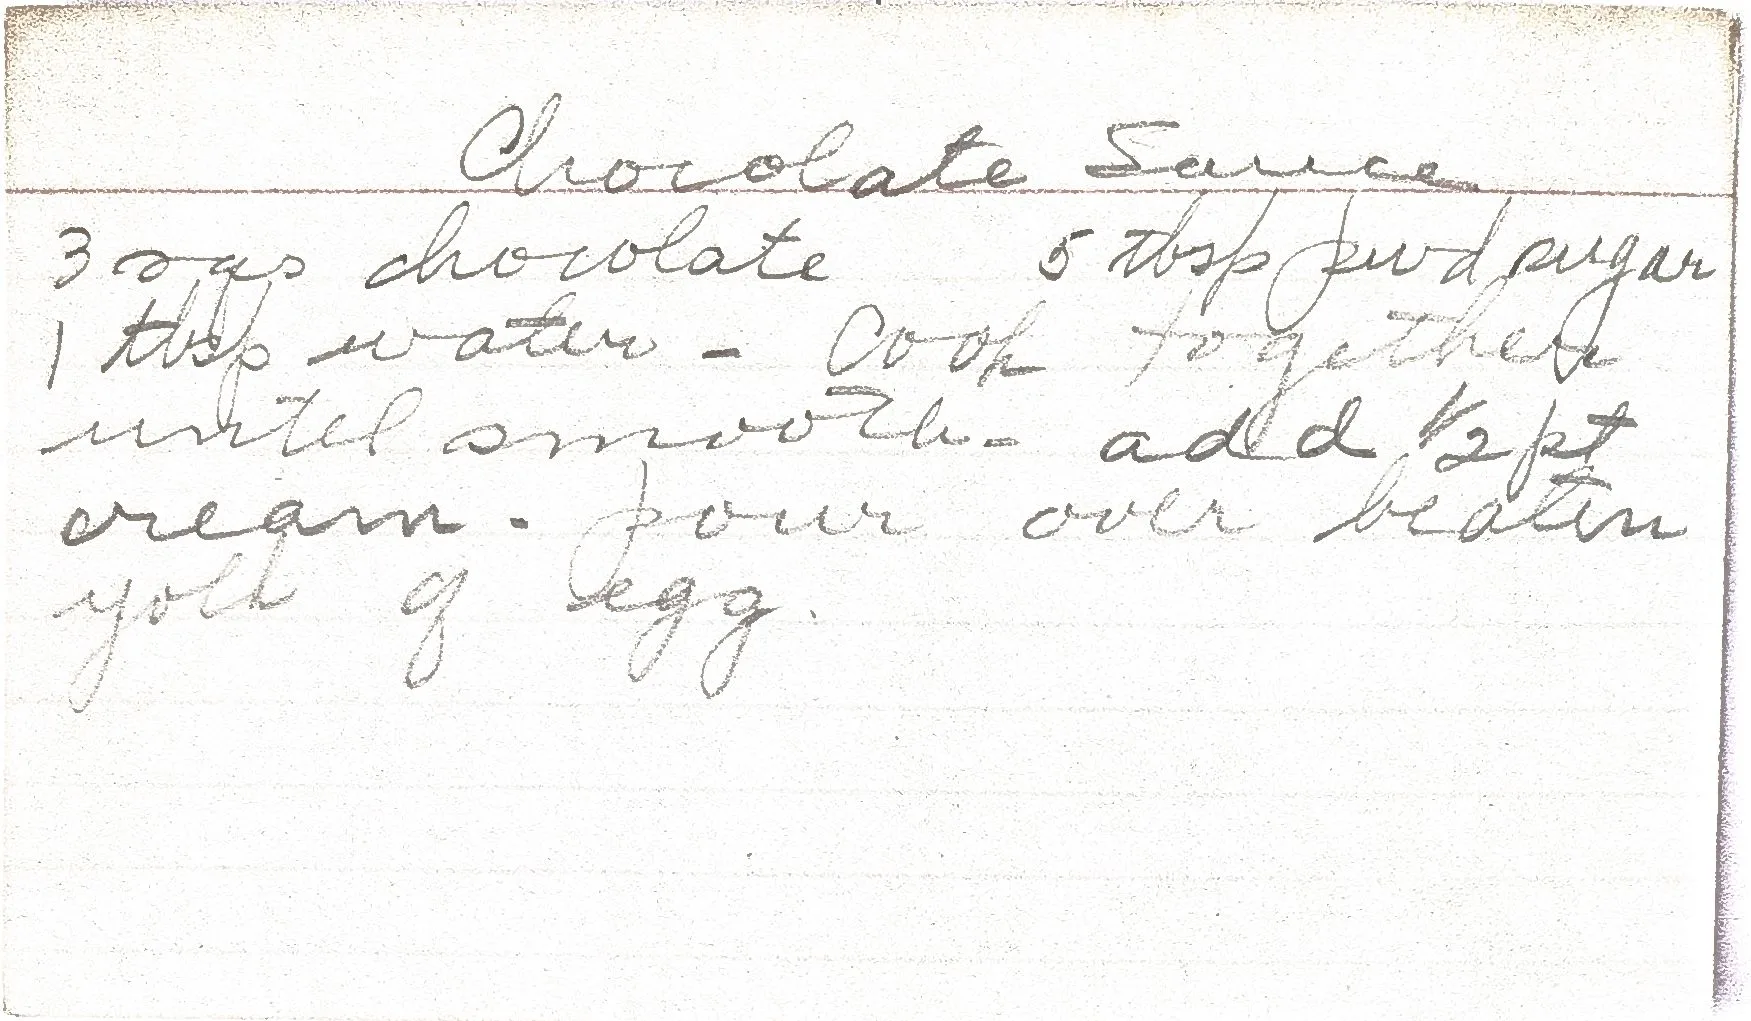 Chocolate Sauce
3 sqs chocolate 5 tbsp pwd sugar
1 tbsp water - Cook together
until smooth - add 1/2 pt
cream - pour over beaten
yolk of egg.